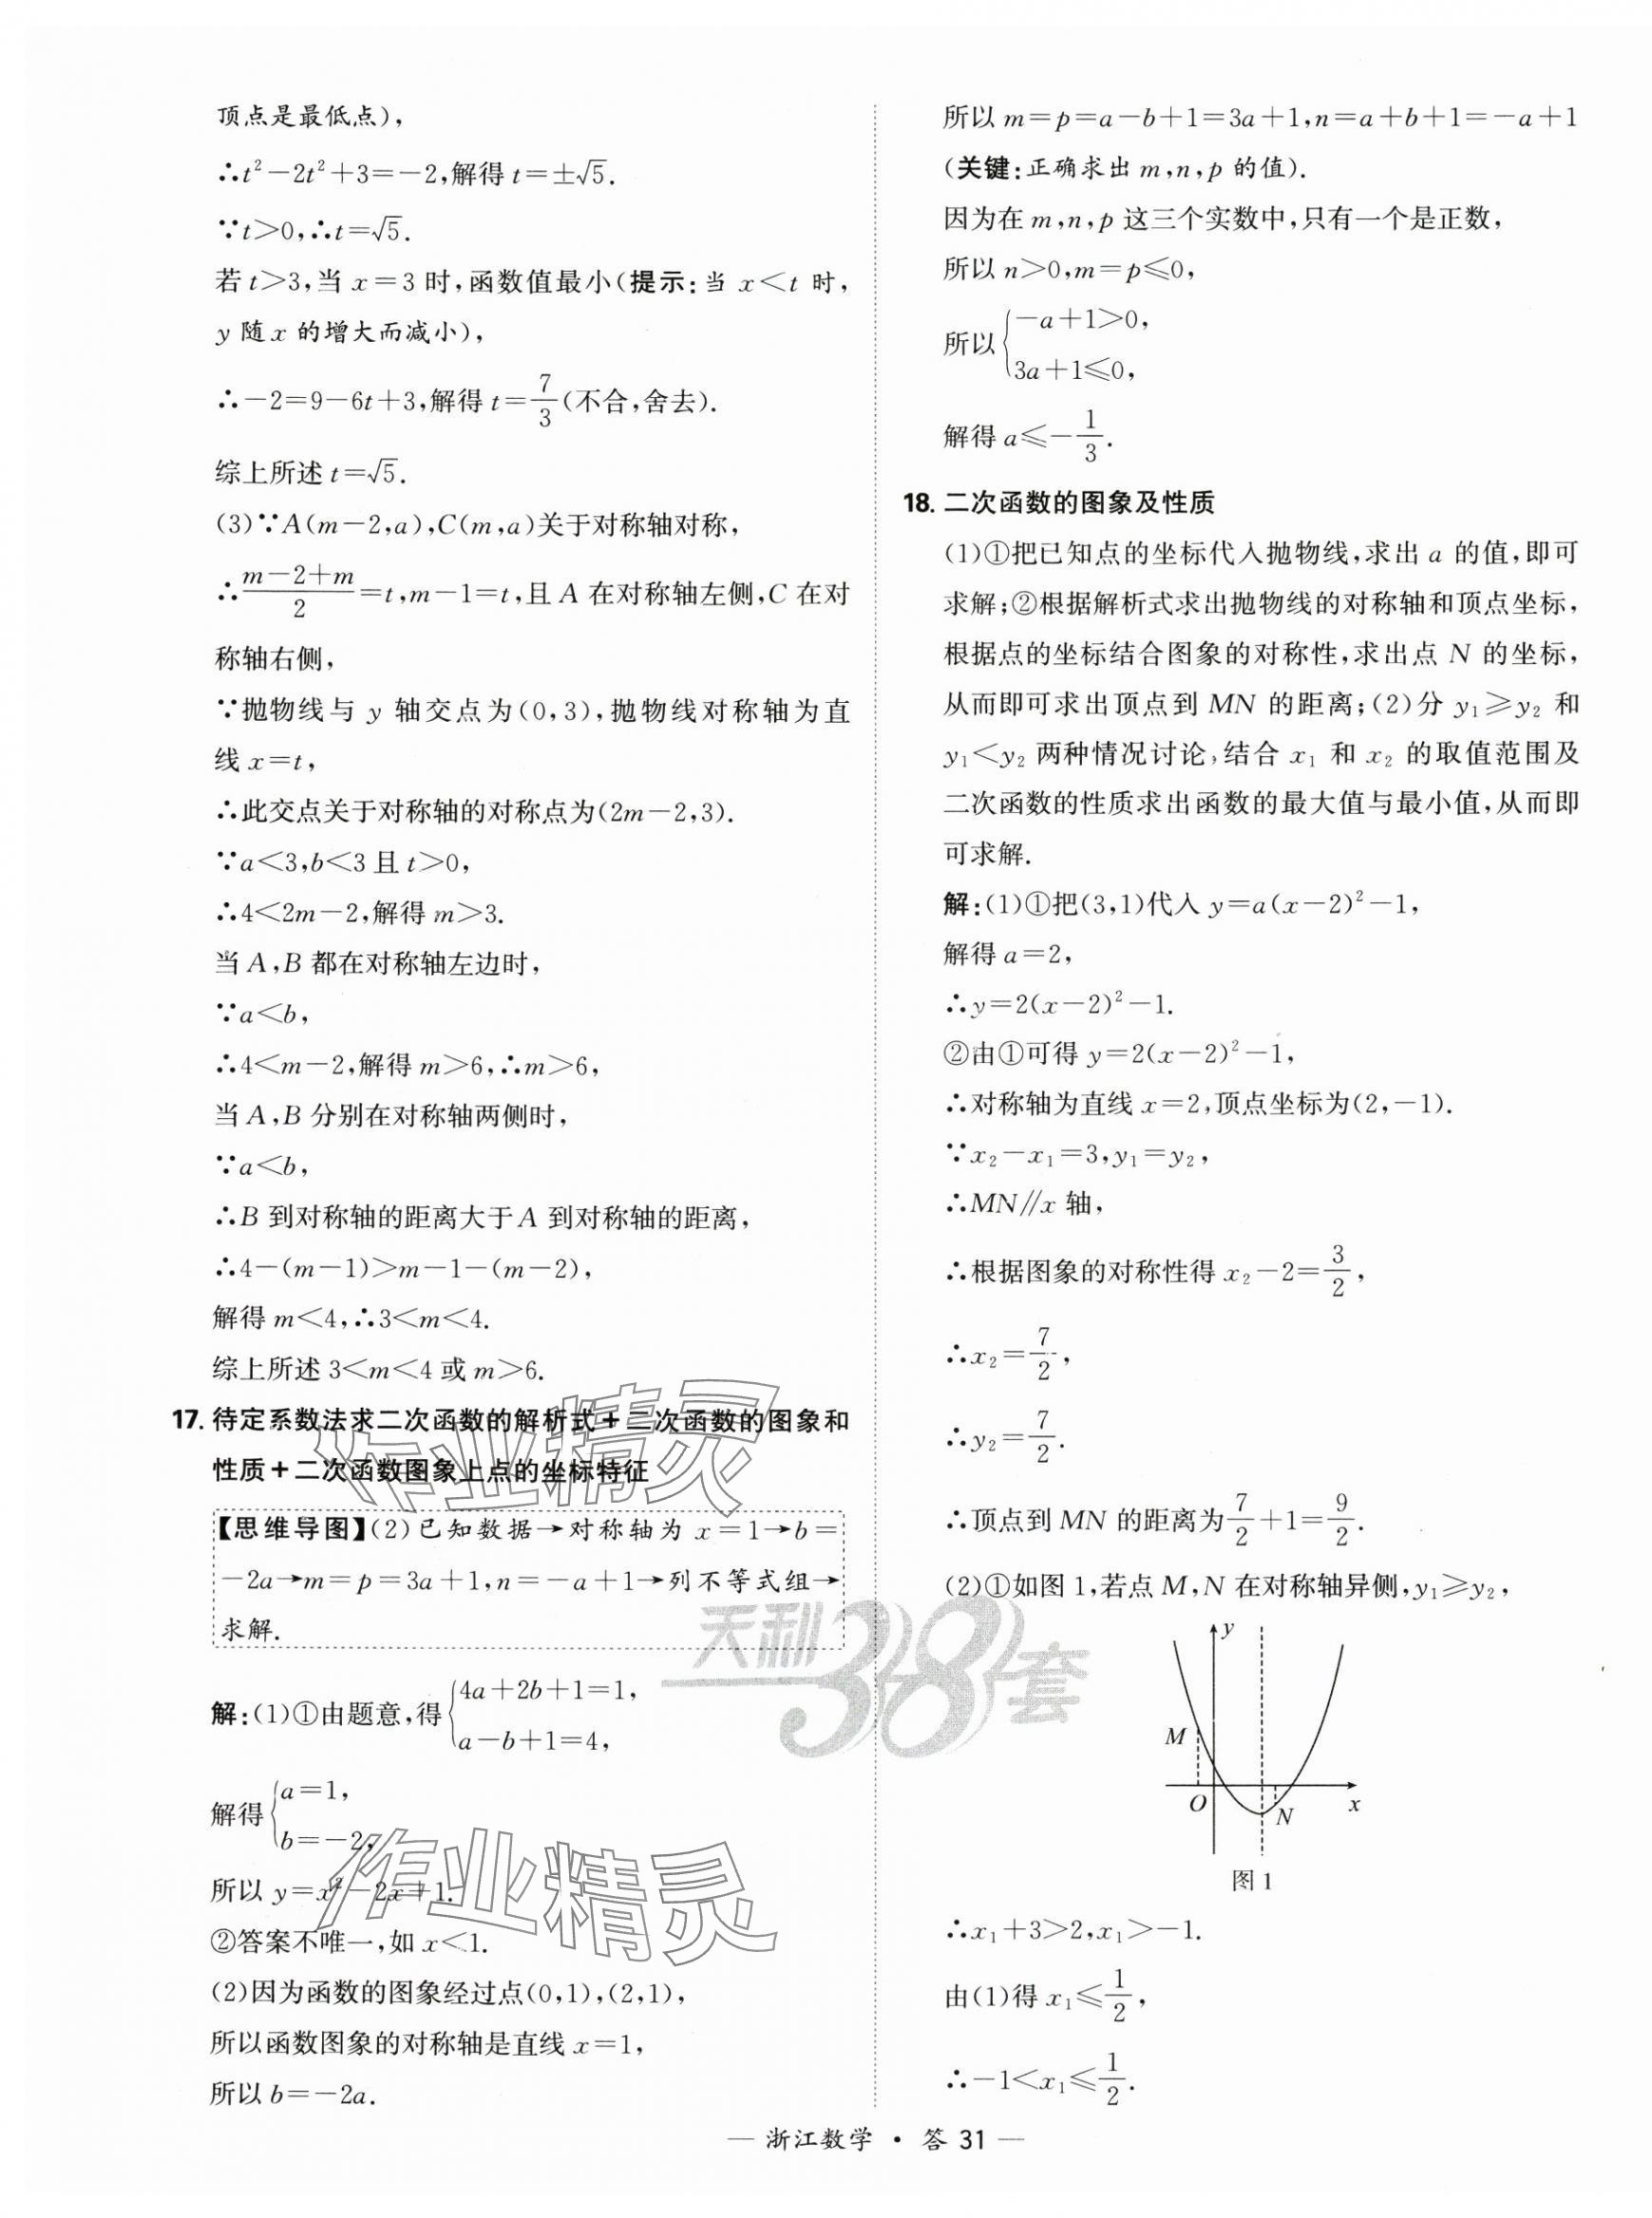 顶点是最低点),
∴t²-2t²+3=-2,解得 t=±√5.
∵t>0,∴t=√5.
若 t>3,当 x=3 时,函数值最小(提示:当 x<t 时,
y 随 x 的增大而减小),
∴-2=9-6t+3,解得 t=7/3(不合,舍去).
综上所述 t=√5.
(3)∵A(m-2,a),C(m,a)关于对称轴对称,
∴(m-2+m)/2=t,m-1=t,且 A 在对称轴左侧,C 在对
称轴右侧,
∵抛物线与 y 轴交点为(0,3),抛物线对称轴为直
线 x=t,
∴此交点关于对称轴的对称点为(2m-2,3).
∵a<3,b<3 且 t>0,
∴4<2m-2,解得 m>3.
当 A,B 都在对称轴左边时,
∵a<b,
∴4<m-2,解得 m>6,∴m>6,
当 A,B 分别在对称轴两侧时,
∵a<b,
∴B 到对称轴的距离大于 A 到对称轴的距离,
∴4-(m-1)>m-1-(m-2),
解得 m<4,∴3<m<4.
综上所述 3<m<4 或 m>6.
17. 待定系数法求二次函数的解析式+二次函数的图象和
性质+二次函数图象上点的坐标特征
【思维导图】(2)已知数据→对称轴为 x=1→b=
-2a→m=p=3a+1,n=-a+1→列不等式组→
求解.
解:(1)①由题意,得{4a+2b+1=1,
a-b+1=4,
解得{a=1,
b=-2,
所以 y=x²-2x+1.
②答案不唯一,如 x<1.
(2)因为函数的图象经过点(0,1),(2,1),
所以函数图象的对称轴是直线 x=1,
所以 b=-2a.
所以 m=p=a-b+1=3a+1,n=a+b+1=-a+1
(关键:正确求出 m,n,p 的值).
因为在 m,n,p 这三个实数中,只有一个是正数,
所以 n>0,m=p≤0,
所以{-a+1>0,
3a+1≤0,
解得 a≤-1/3.
18. 二次函数的图象及性质
(1)①把已知点的坐标代入抛物线,求出 a 的值,即可
求解;②根据解析式求出抛物线的对称轴和顶点坐标,
根据点的坐标结合图象的对称性,求出点 N 的坐标,
从而即可求出顶点到 MN 的距离;(2)分 y₁≥y₂ 和
y₁<y₂ 两种情况讨论,结合 x₁ 和 x₂ 的取值范围及
二次函数的性质求出函数的最大值与最小值,从而即
可求解.
解:(1)①把(3,1)代入 y=a(x-2)²-1,
解得 a=2,
∴y=2(x-2)²-1.
②由①可得 y=2(x-2)²-1,
∴对称轴为直线 x=2,顶点坐标为(2,-1).
∵x₂-x₁=3,y₁=y₂,
∴MN∥x 轴,
∴根据图象的对称性得 x₂-2=3/2,
∴x₂=7/2,
∴y₂=7/2.
∴顶点到 MN 的距离为7/2+1=9/2.
(2)①如图 1,若点 M,N 在对称轴异侧,y₁≥y₂,
y
M
O
N
x
图 1
∴x₁+3>2,x₁>-1.
由(1)得 x₁≤1/2,
∴-1<x₁≤1/2.
— 浙江数学 · 答 31 —
作业精灵
天利38套
作业精灵